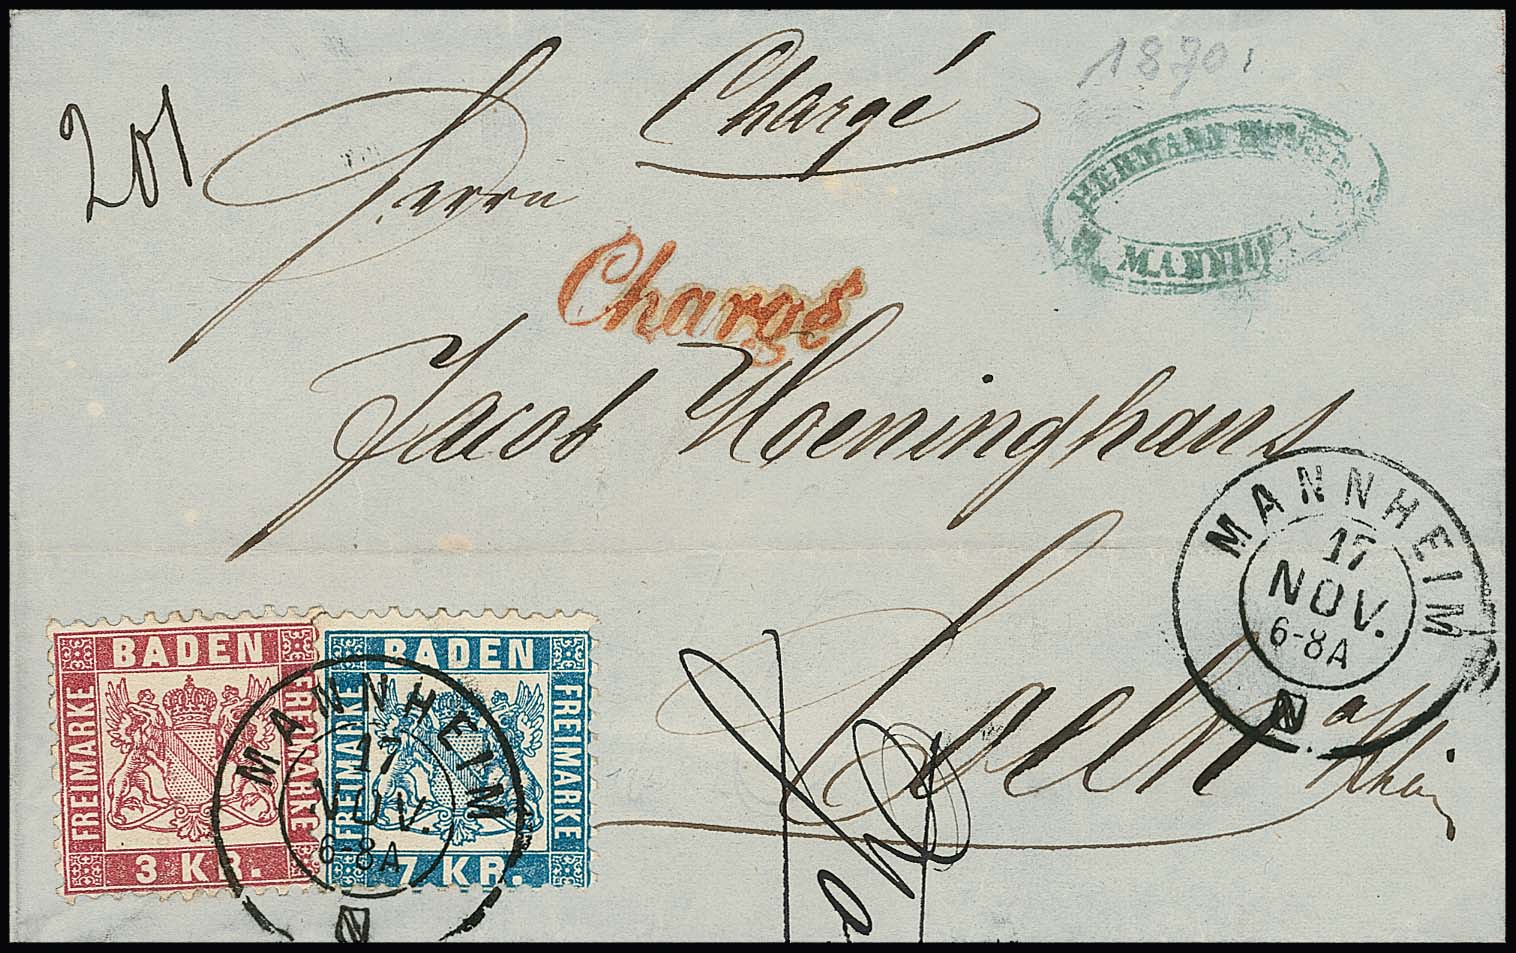 Chargé
1870.
201
Herrn
HERMANN
MANNHEIM
Chargé
Jacob Hoeninghaus
MANNHEIM
17
NOV.
6-8A
N
Coeln a/Rhein
BADEN
FREIMARKE
FREIMARKE
3 KR.
BADEN
FREIMARKE
FREIMARKE
7 KR.
MANNHEIM
17
NOV.
6-8A
N